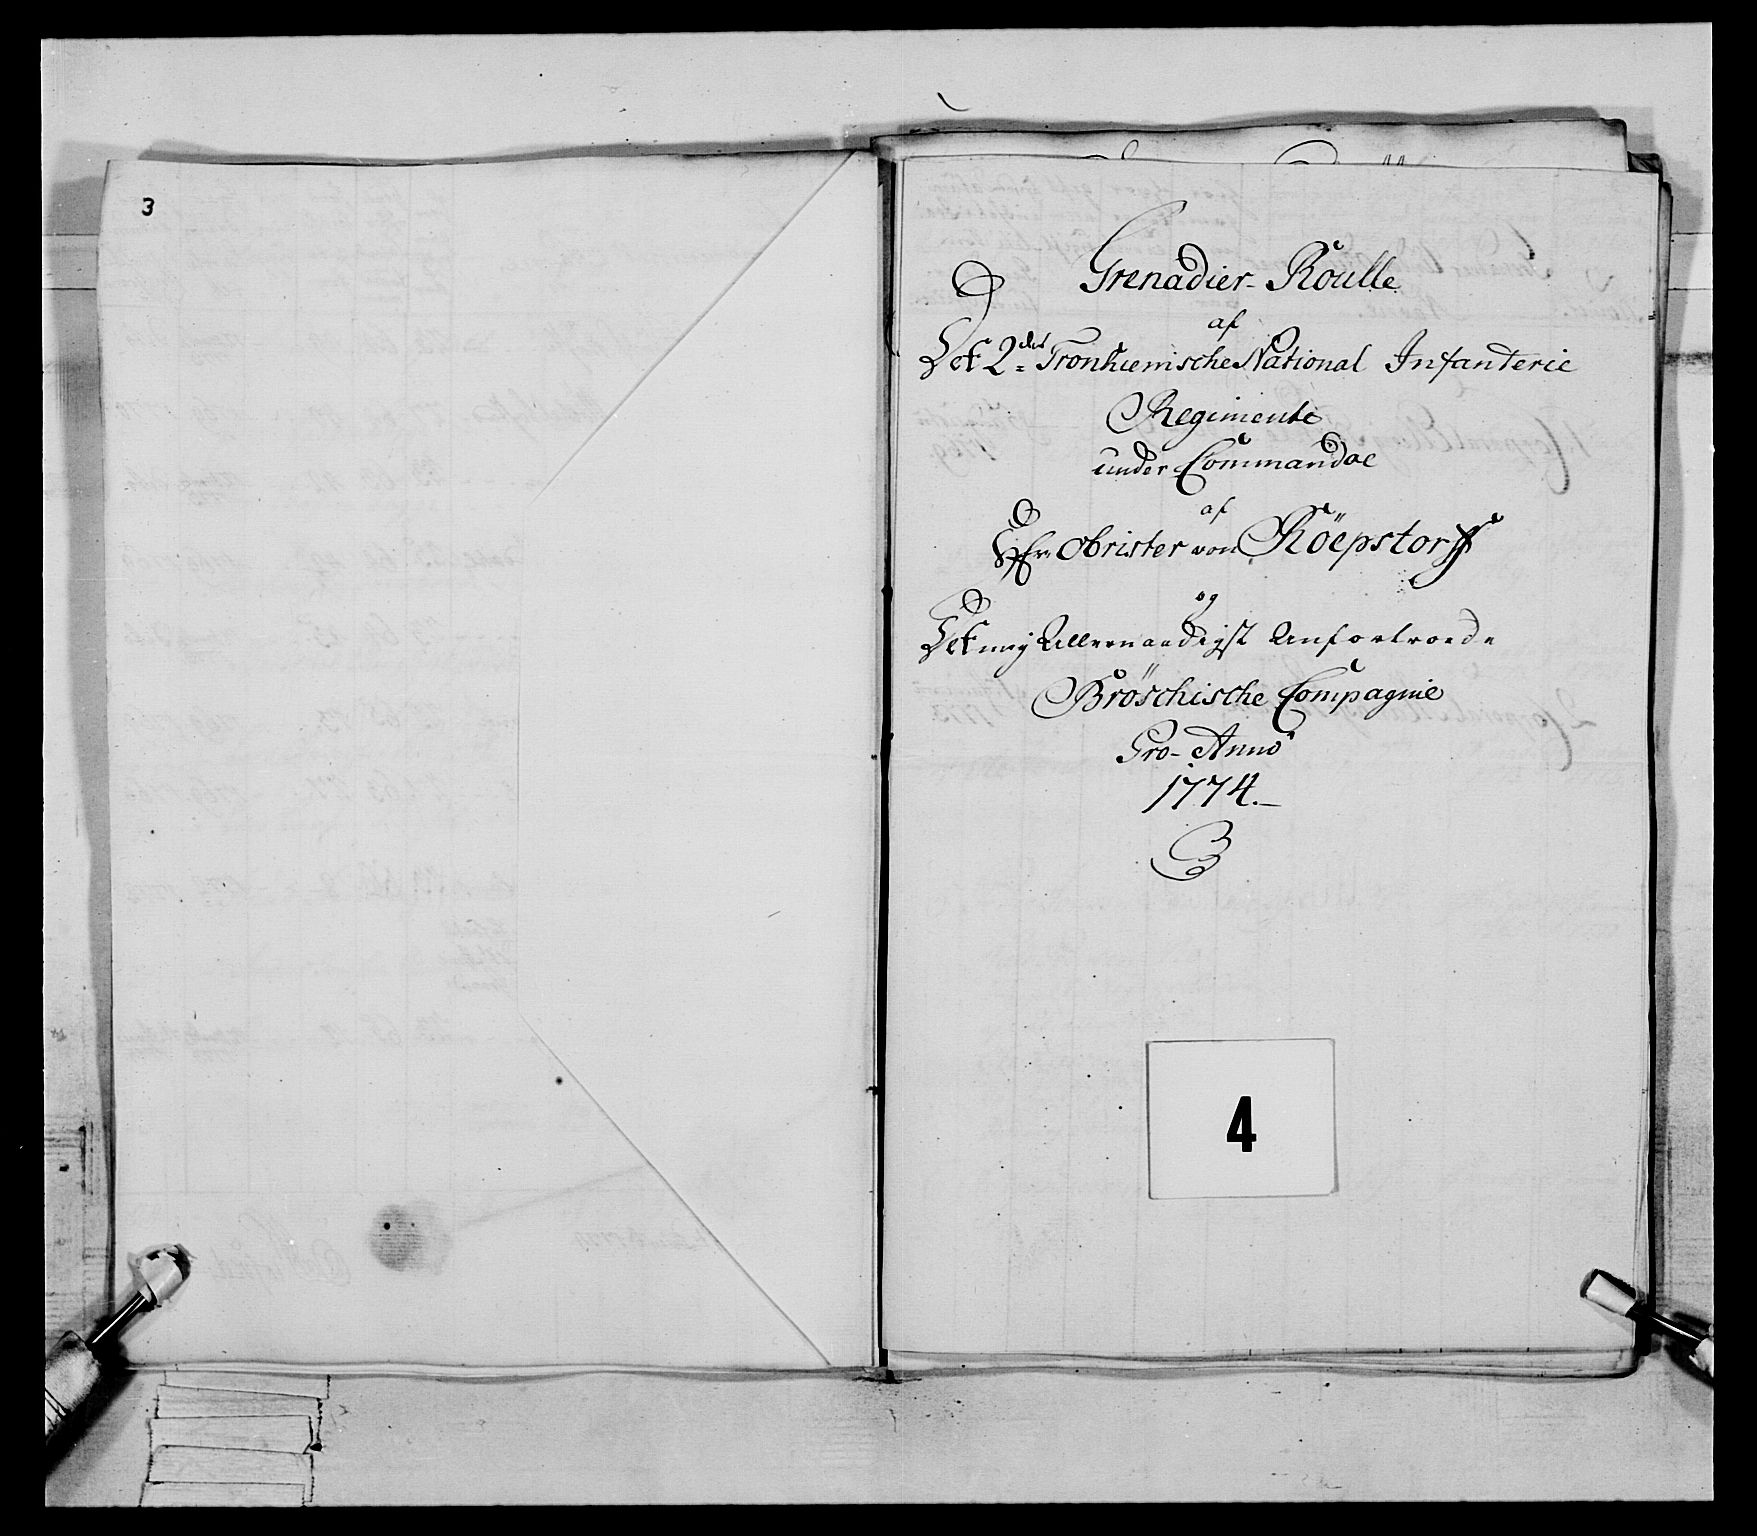 3
Grenadier-Roulle
af
Det 2det Tronhiemische National Infanterie
Regimente
under Commandoe
af
Hr Obrister von Röepstorff
og
Det mig Allernaadigst Anfortroede
Bröschische Compagnie
Pro-Anno
1774.
4